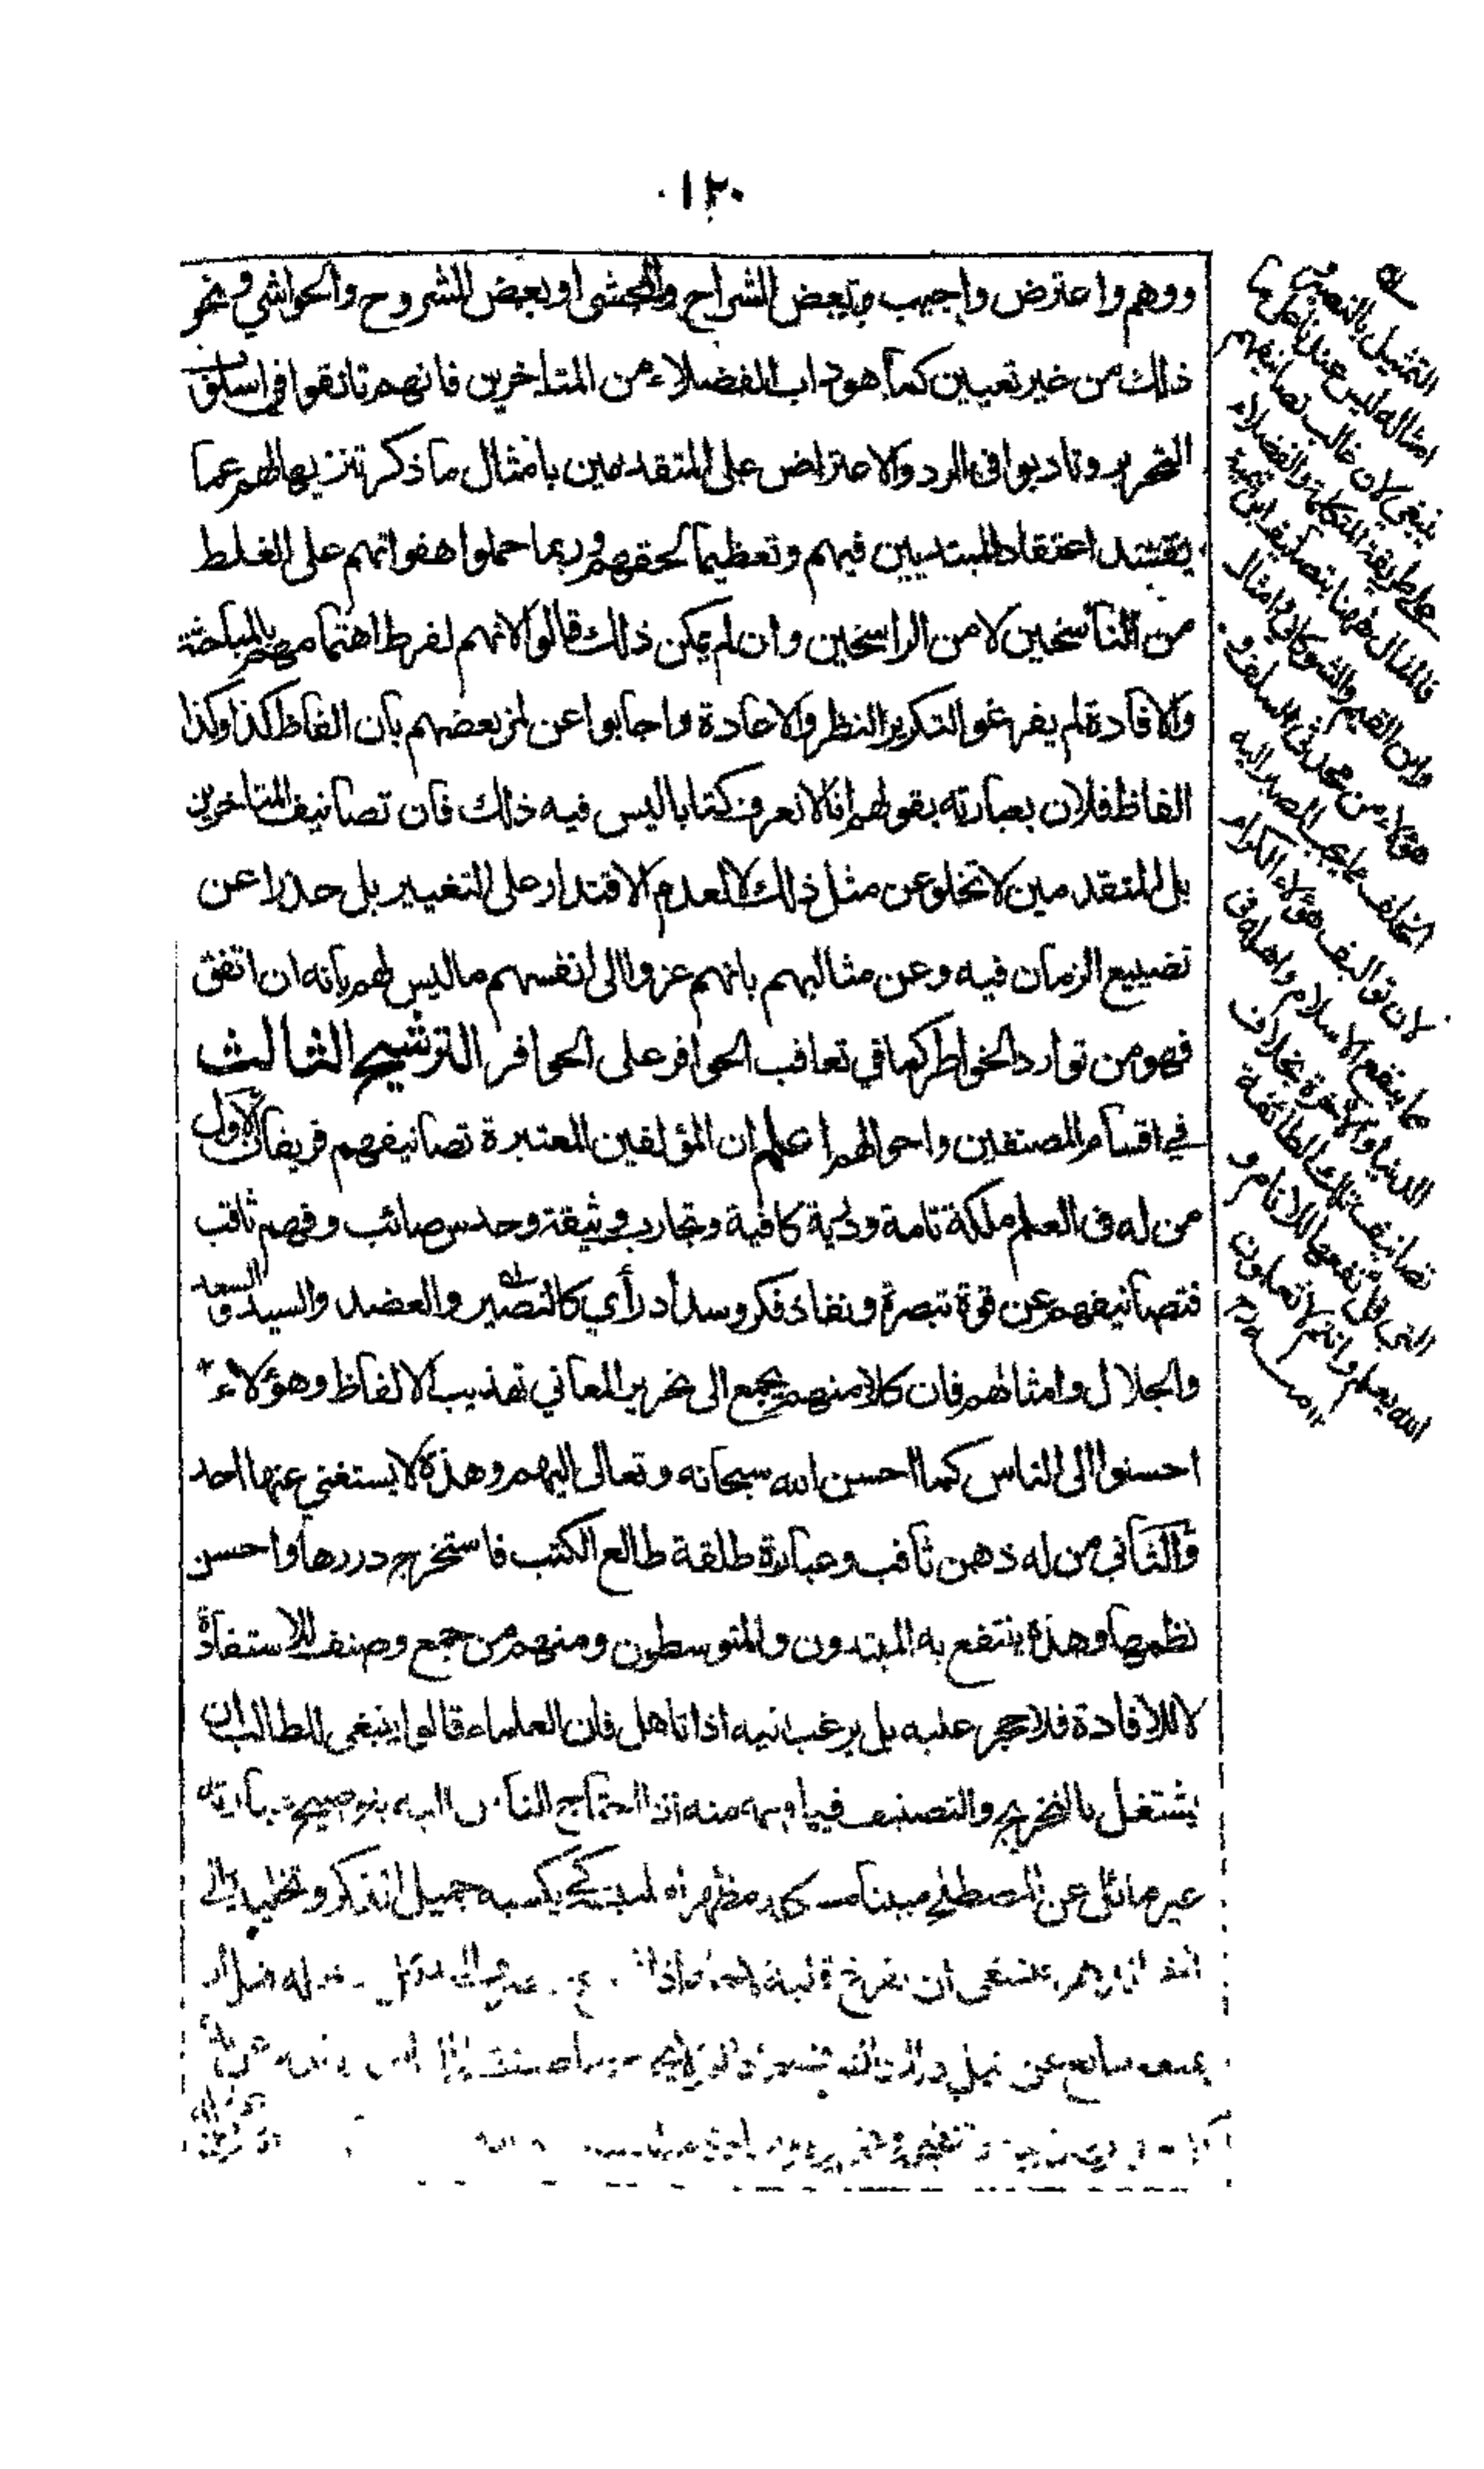 ١٢٠
ووهم واعترض واجيب وبعض الشراح والمحشى او بعض الشروح والحواشي ونحو
ذلك من غير تعيين كما هو داب الفضلاء من المتاخرين فانهم تانقوا في اسلوب
التحرير وتادبوا في الرد والاعتراض على المتقدمين بامثال ما ذكر تنزيها لهم عما
يفسد اعتقاد المبتديين فيهم وتعظيما لحقهم وربما حملوا هفواتهم على الغلط
من الناسخين لا من الراسخين وان لم يكن ذلك قالوا لانهم لفرط اهتمامهم بالمباحثة
والافادة لم يفرغوا لتكرير النظر والاعادة واجابوا عن لمز بعضهم بان الفاظ كذا وكذا
الفاظ فلان بعبارته بقولهم انا لا نعرف كتابا ليس فيه ذلك فان تصانيف المتاخرين
بل المتقدمين لا تخلو عن مثل ذلك لا لعدم الاقتدار على التغيير بل حذرا عن
تضييع الزمان فيه وعن مثالبهم بانهم عزوا الى انفسهم ما ليس لهم بانه ان اتفق
فهو من توارد الخواطر كما في تعاقب الحوافر على الحوافر الترشيح الثالث
في اقسام المصنفين واحوالهم اعلم ان المؤلفين المعتبرة تصانيفهم فريقان الاول
من له في العلم ملكة تامة ودربة كافية وتجارب وثيقة وحدس صائب وفهم ثاقب
فتصانيفهم عن قوة تبصرة ونفاذ فكر وسداد رأي كالنصير والعضد والسيد والسعد
والجلال وامثالهم فان كلا منهم يجمع الى تحرير المعاني تهذيب الالفاظ وهؤلاء
احسنوا الى الناس كما احسن الله سبحانه وتعالى اليهم وهذه لا يستغني عنها احد
والثاني من له ذهن ثاقب وعبارة طلقة طالع الكتب فاستخرج دررها واحسن
نظمها وهذه ينتفع به المبتدون والمتوسطون ومنهم من جمع وصنف للاستفادة
لا للافادة فلا حجر عليه بل يرغب اليه اذا تاهل فان العلماء قالوا ينبغي للطالب ان
يشتغل بالتخريج والتصنيف فيما فهمه منه اذا احتاج الناس اليه بتوضيح عبارته
غير مائل عن المصطلح مبينا مشكله مظهرا ملتبسه كي يكسبه جميل الذكر وتخليده الى
ينبغي ان يفرغ قلبه
عن نيل
التمثيل بالنصير
امثاله ليس عندنا كما
ينبغي لان غالب تصانيفهم
على طريقة الحكماء والفضلاء
فالمثال ههنا بتصانيف ابن تيمية
وابن القيم والشوكاني وامثال
هؤلاء من مجددي السلف و
الخلف مما يجب المصير اليه
لان تواليف هؤلاء الكرام
مما ينفع الاسلام واهله في
الدنيا والاخرة بخلاف
تصانيف تلك الطائفة
التي قل نفعها للانام و
الله يعلم وانتم لا تعلمون